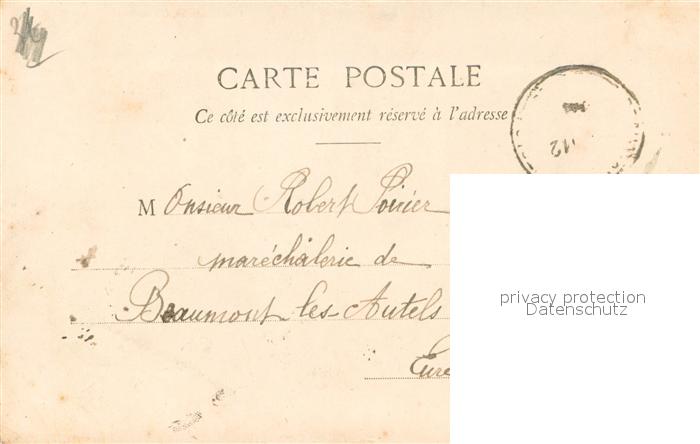 CARTE POSTALE
Ce côté est exclusivement réservé à l'adresse
12
Monsieur Robert Poirier
maréchalerie de
Beaumont les Autels
Eure
privacy protection
Datenschutz